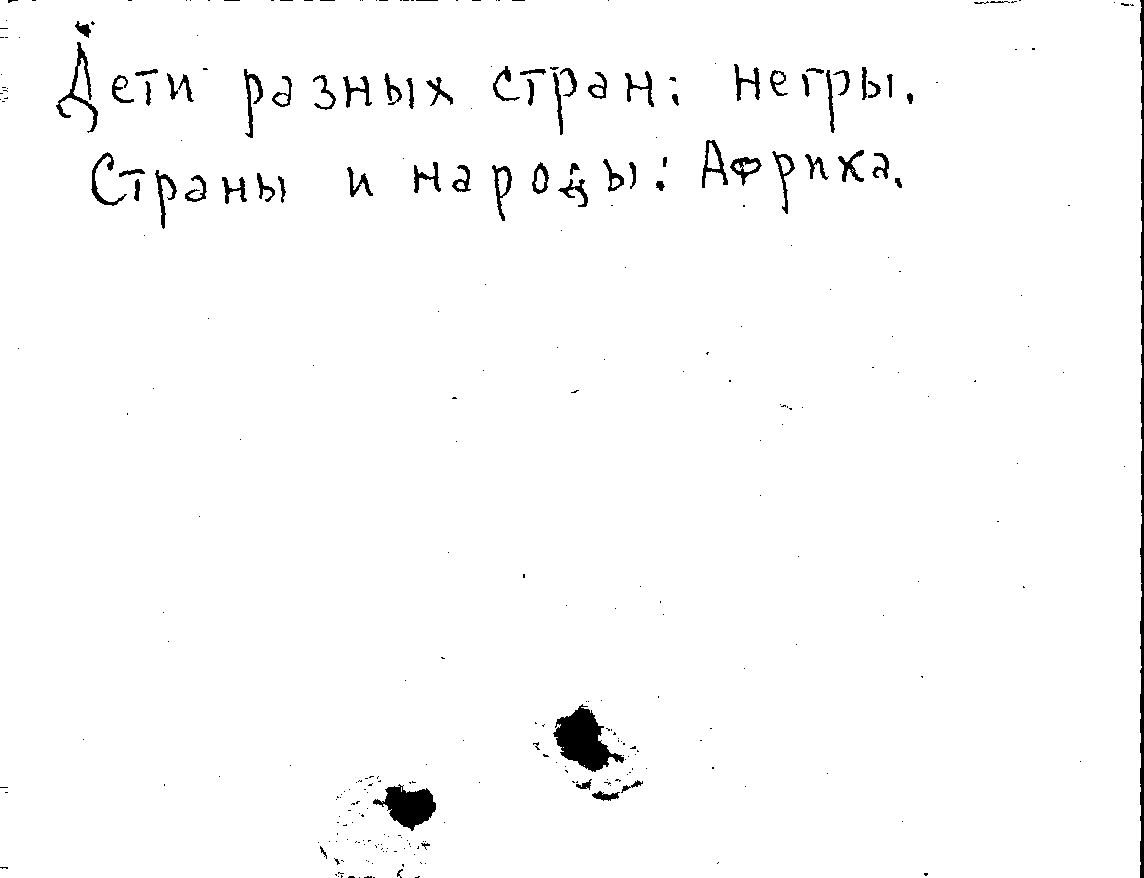 Дети разных стран: негры.
Страны и народы: Африка.